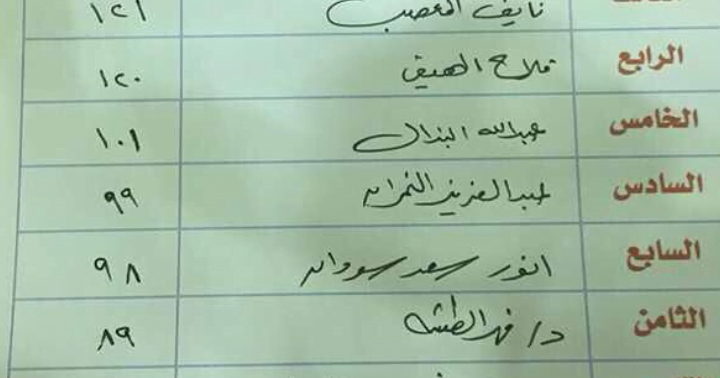 نايف المعصب ١٢١
الرابع فلاح الهيق ١٢٠
الخامس عبدالله البذال ١٠١
السادس عبدالعزيز النمران ٩٩
السابع انور سعد سودان ٩٨
الثامن د/ فهد الطشه ٨٩